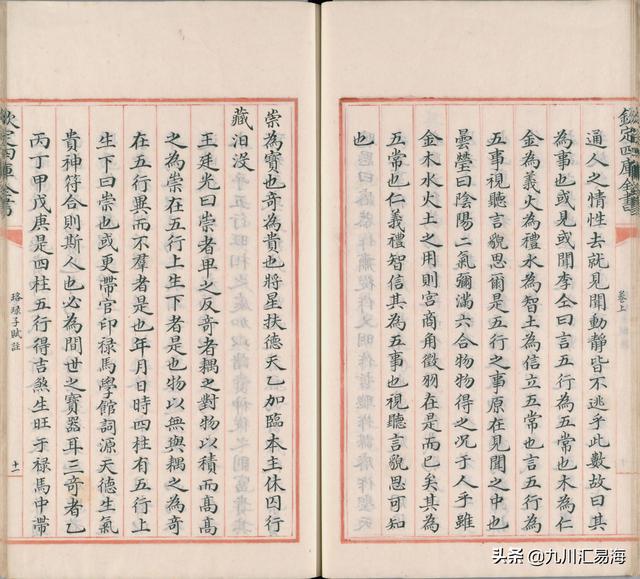 欽定四庫全書
卷上
通人之情性去就見聞動靜皆不逃乎此數故曰其
為事也或見或聞李仝曰言五行為五常也木為仁
金為義火為禮水為智土為信立五常也言五行為
五事視聽言貌思爾是五行之事原在見聞之中也
曇瑩曰陰陽二氣彌滿六合物物得之況于人乎雖
金木水火土之用則宮商角徵羽在是而已矣其為
五常也仁義禮智信其為五事也視聽言貌思可知
也
崇為寶也奇為貴也將星扶德天乙加臨本主休囚行
藏汩没
王廷光曰崇者卑之反奇者耦之對物以積而高高
之為崇在五行上生下者是也物以無與耦之為奇
在五行異而不羣者是也年月日時四柱有五行上
生下曰崇也或更帶官印禄馬學館詞源天德生氣
貴神符合則斯人也必為間世之寶器耳三奇者乙
丙丁甲戊庚是四柱五行得吉煞生旺于禄馬中帶
欽定四庫全書
珞琭子賦註
十一
头条 @九川汇易海